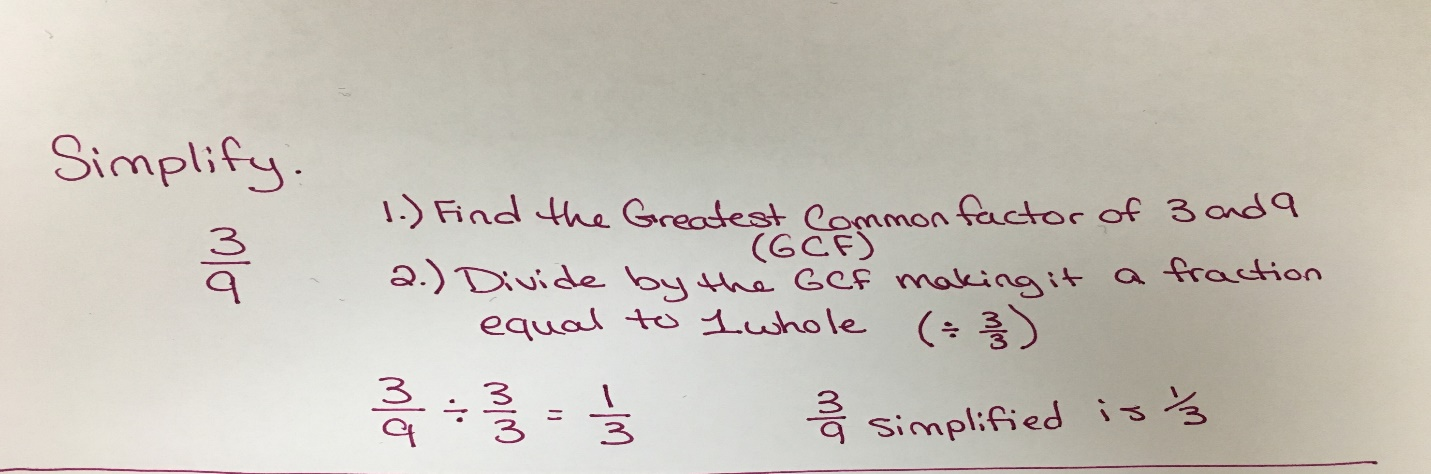 Simplify.
3/9
1.) Find the Greatest Common factor of 3 and 9
(GCF)
2.) Divide by the GCF making it a fraction
equal to 1 whole (÷ 3/3)
3/9 ÷ 3/3 = 1/3
3/9 simplified is 1/3